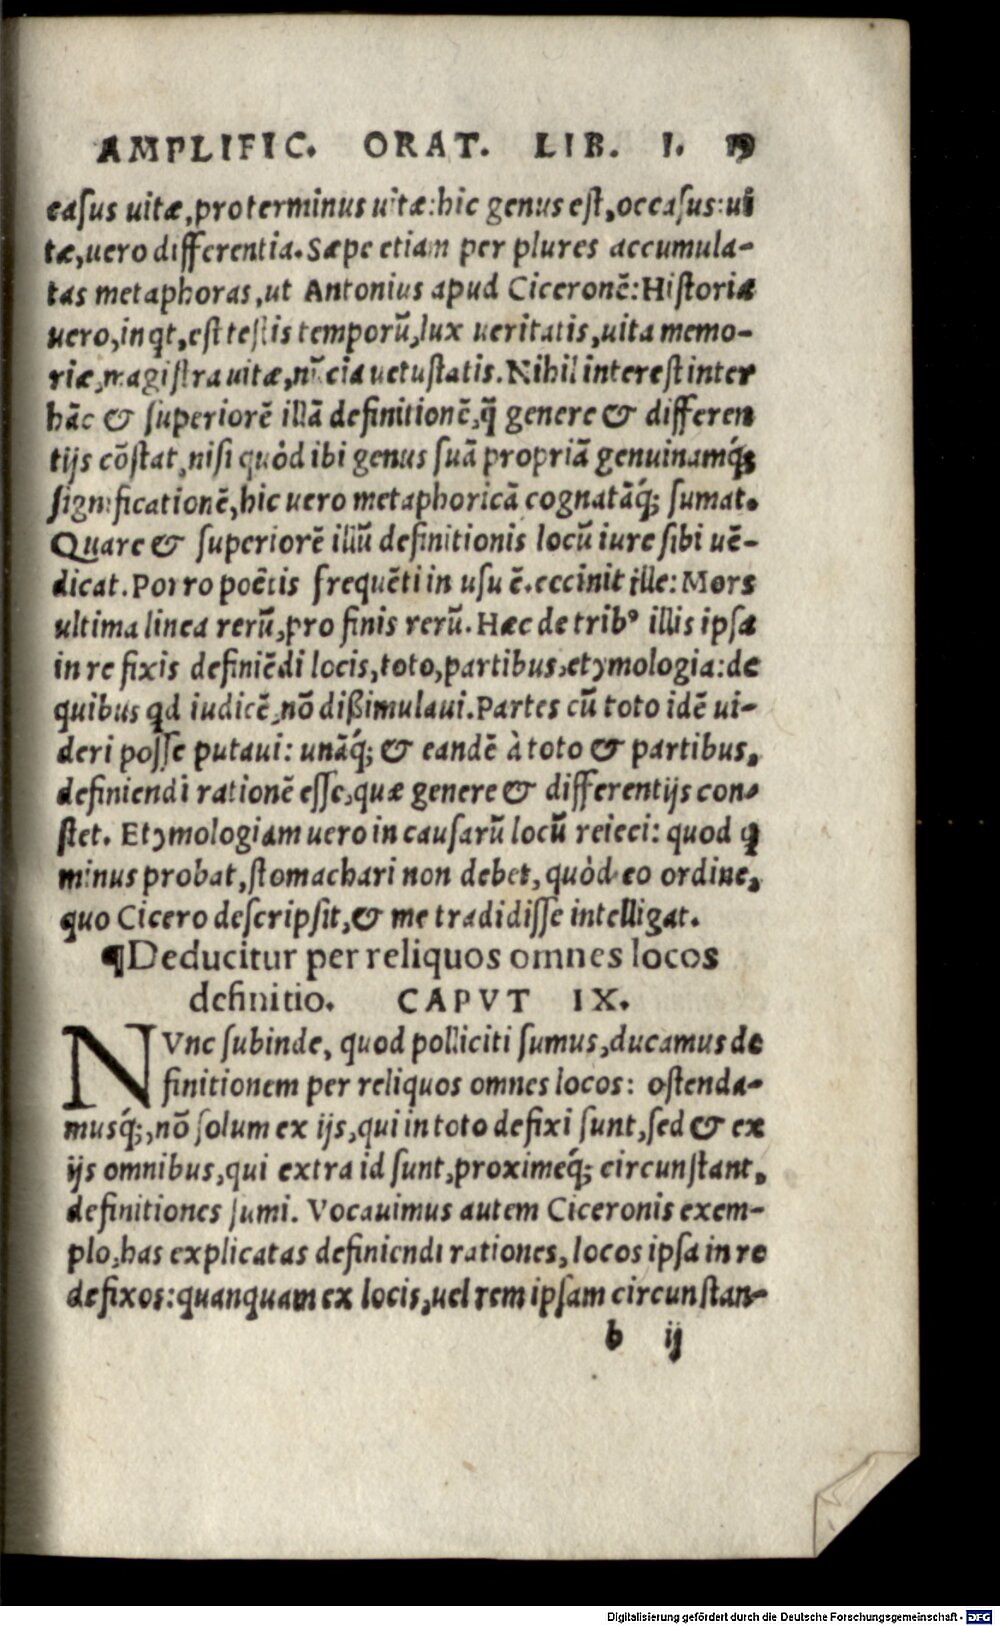 AMPLIFIC. ORAT. LIB. I. 19
casus uitæ, pro terminus uitæ: hic genus est, occasus: ui
tæ, uero differentia. Sæpe etiam per plures accumula-
tas metaphoras, ut Antonius apud Ciceronē: Historia
uero, inqt, est testis temporū, lux ueritatis, uita memo-
riæ, magistra uitæ, nūcia uetustatis. Nihil interest inter
hāc & superiorē illā definitionē, q̄ genere & differen
tijs cōstat, nisi quòd ibi genus suā propriā genuinamq́;
significationē, hic uero metaphoricā cognatāq́; sumat.
Quare & superiorē illū definitionis locū iure sibi uē-
dicat. Porro poētis frequēti in usu ē. eccinit ille: Mors
ultima linea rerū, pro finis rerū. Hæc de tribꝰ illis ipsa
in re fixis definiēdi locis, toto, partibus, etymologia: de
quibus qd iudicē, nō dißimulaui. Partes cū toto idē ui-
deri posse putaui: unāq́; & eandē à toto & partibus,
definiendi rationē esse, quæ genere & differentijs con-
stet. Etymologiam uero in causarū locū reieci: quod q
minus probat, stomachari non debet, quòd eo ordine,
quo Cicero descripsit, & me tradidisse intelligat.
¶Deducitur per reliquos omnes locos
definitio. CAPVT IX.
NVnc subinde, quod polliciti sumus, ducamus de
finitionem per reliquos omnes locos: ostenda-
musq́;, nō solum ex ijs, qui in toto defixi sunt, sed & ex
ijs omnibus, qui extra id sunt, proximeq́; circunstant,
definitiones sumi. Vocauimus autem Ciceronis exem-
plo, has explicatas definiendi rationes, locos ipsa in re
defixos: quanquam ex locis, uel rem ipsam circunstan-
b ij
Digitalisierung gefördert durch die Deutsche Forschungsgemeinschaft - DFG